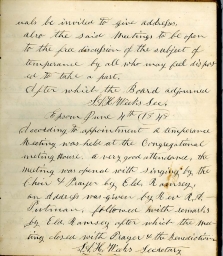 uals be invited to give address,
also the said Meetings to be open
to the free discussion of the subject of
temperance by all who may feel dispos
ed to take a part.
After which the Board adjourned
Wicks Sec.
Epsom June 4th 184
According to appointment a temperance
Meeting was held at the Congregational
meeting House. a very good attendance, the
meeting was opened with singing by the
Choir & Prayer by Eld. Ramsey,
an Address was given by Rev. R. A.
Putnam, followed with remarks
by Eld. Ramsey after which the mee
ting closed with Prayer & the Benediction.
Wicks Secretary